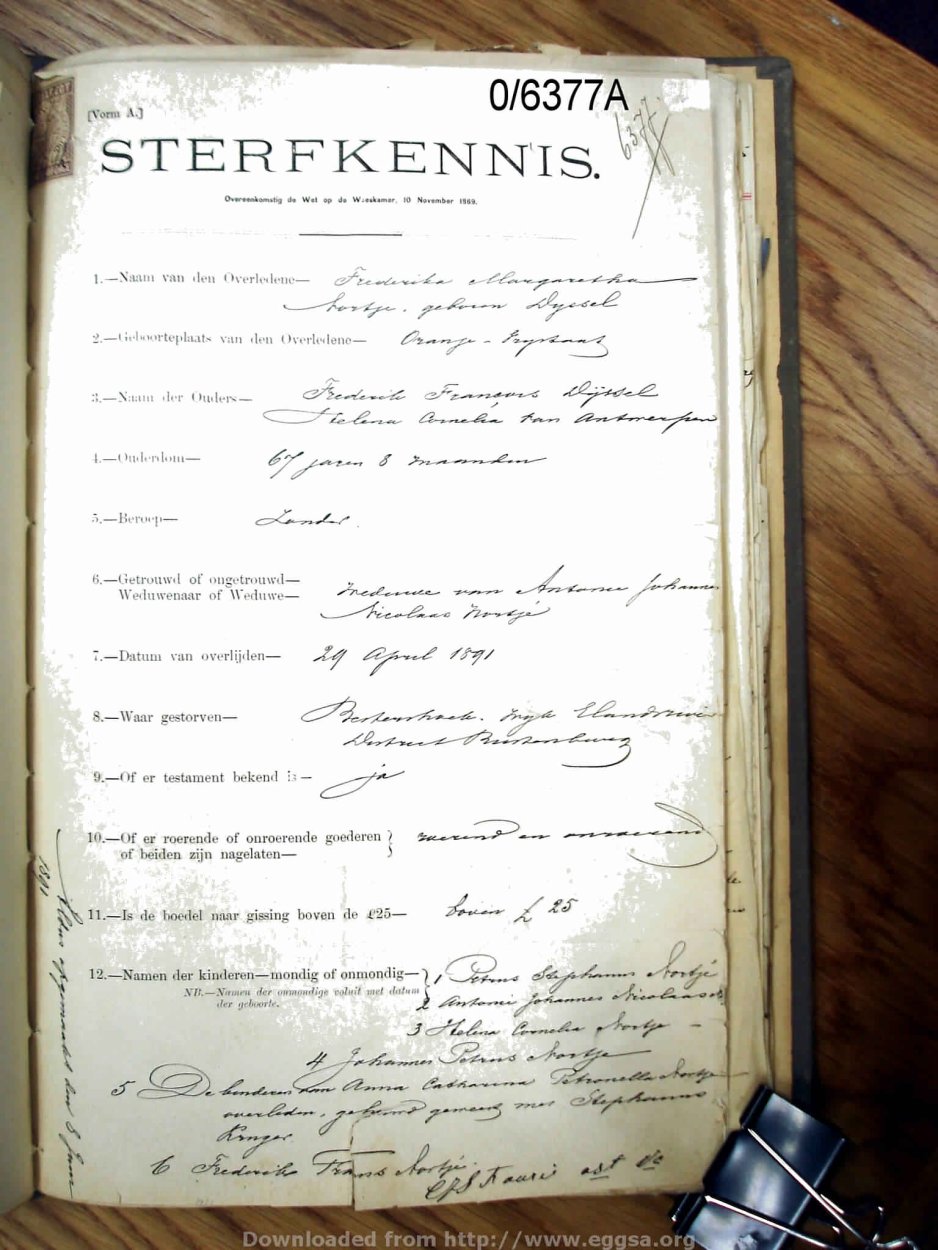 0/6377A
[Vorm A.]
6377
STERFKENNIS.
Overeenkomstig de Wet op de Weeskamer, 10 November 1869.
1.—Naam van den Overledene— Frederika Margaretha
Nortje, geboren Dyssel
2.—Geboorteplaats van den Overledene— Oranje-Vrystaat
3.—Naam der Ouders— Frederik Francois Dijssel
Helena Cornelia van Antwerpen
4.—Ouderdom— 67 jaren 8 maanden
5.—Beroep— Zonder.
6.—Getrouwd of ongetrouwd—
Weduwenaar of Weduwe— Weduwe van Antonie Johannes
Nicolaas Nortjé
7.—Datum van overlijden— 29 April 1891
8.—Waar gestorven— Wyk Elandrivier
District Rustenburg
9.—Of er testament bekend is— ja
10.—Of er roerende of onroerende goederen } roerend en onroerend
of beiden zijn nagelaten—
11.—Is de boedel naar gissing boven de £25— boven £ 25
12.—Namen der kinderen—mondig of onmondig— } 1 Petrus Stephanus Nortjé
NB.—Namen der onmondige voluit met datum
der geboorte.
2 Antonie Johannes Nicolaas
3 Helena Cornelia Nortje —
4 Johannes Petrus Nortje
5 De kinderen van Anna Catharina Petronella Nortje
overleden, gehuwd geweest met Stephanus
Kruger.
6 Frederik Frans Nortjé.
1891
Downloaded from http://www.eggsa.org